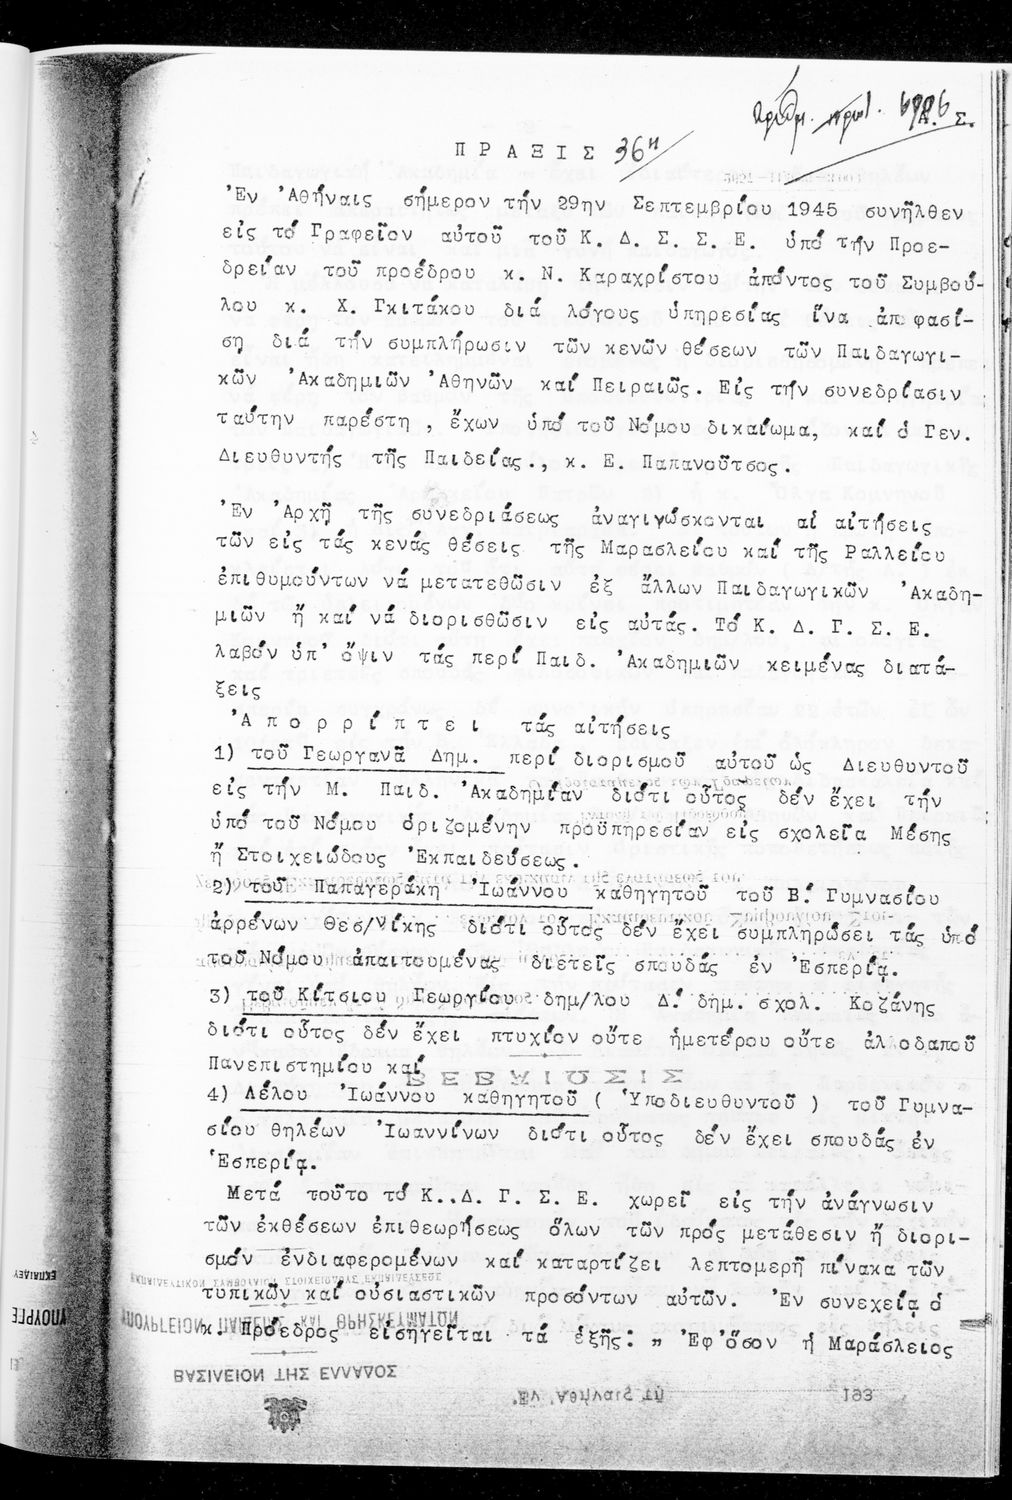 Ἀριθμ. πρωτ.
Α. Σ.
ΠΡΑΞΙΣ 36η
Ἐν Ἀθήναις σήμερον τήν 29ην Σεπτεμβρίου 1945 συνῆλθεν
εἰς τό Γραφεῖον αὐτοῦ τοῦ Κ. Δ. Σ. Σ. Ε. ὑπό τήν Προε-
δρείαν τοῦ προέδρου κ. Ν. Καραχρίστου ἀπόντος τοῦ Συμβού-
λου κ. Χ. Γκιτάκου διά λόγους ὑπηρεσίας ἵνα ἀποφασί-
σῃ διά τήν συμπλήρωσιν τῶν κενῶν θέσεων τῶν Παιδαγωγι-
κῶν Ἀκαδημιῶν Ἀθηνῶν καί Πειραιῶς. Εἰς τήν συνεδρίασιν
ταύτην παρέστη , ἔχων ὑπό τοῦ Νόμου δικαίωμα, καί ὁ Γεν.
Διευθυντής τῆς Παιδείας., κ. Ε. Παπανοῦτσος.
Ἐν Ἀρχῇ τῆς συνεδριάσεως ἀναγιγώσκονται αἱ αἰτήσεις
τῶν εἰς τάς κενάς θέσεις τῆς Μαρασλείου καί τῆς Ραλλείου
ἐπιθυμούντων νά μετατεθῶσιν ἐξ ἄλλων Παιδαγωγικῶν Ἀκαδη-
μιῶν ἤ καί νά διορισθῶσιν εἰς αὐτάς. Τό Κ. Δ. Γ. Σ. Ε.
λαβόν ὑπ' ὄψιν τάς περί Παιδ. Ἀκαδημιῶν κειμένας διατά-
ξεις
Ἀ π ο ρ ρ ί π τ ε ι τάς αἰτήσεις
1) τοῦ Γεωργανᾶ Δημ. περί διορισμοῦ αὐτοῦ ὡς Διευθυντοῦ
εἰς τήν Μ. Παιδ. Ἀκαδημίαν διότι οὗτος δέν ἔχει τήν
ὑπό τοῦ Νόμου ὁριζομένην προϋπηρεσίαν εἰς σχολεῖα Μέσης
ἤ Στοιχειώδους Ἐκπαιδεύσεως.
2) τοῦ Παπαγεράκη Ἰωάννου καθηγητοῦ τοῦ Β. Γυμνασίου
ἀρρένων Θεσ/νίκης διότι οὗτος δέν ἔχει συμπληρώσει τάς ὑπό
τοῦ Νόμου ἀπαιτουμένας διετεῖς σπουδάς ἐν Ἑσπερίᾳ.
3) τοῦ Κίτσιου Γεωργίου δημ/λου Δ. δημ. σχολ. Κοζάνης
διότι οὗτος δέν ἔχει πτυχίον οὔτε ἡμετέρου οὔτε ἀλλοδαποῦ
Πανεπιστημίου καί
4) Λέλου Ἰωάννου καθηγητοῦ ( Ὑποδιευθυντοῦ ) τοῦ Γυμνα-
σίου θηλέων Ἰωαννίνων διότι οὗτος δέν ἔχει σπουδάς ἐν
Ἑσπερίᾳ.
Μετά τοῦτο τό Κ..Δ. Γ. Σ. Ε. χωρεῖ εἰς τήν ἀνάγνωσιν
τῶν ἐκθέσεων ἐπιθεωρήσεως ὅλων τῶν πρός μετάθεσιν ἤ διορι-
σμόν ἐνδιαφερομένων καί καταρτίζει λεπτομερῆ πίνακα τῶν
τυπικῶν καί οὐσιαστικῶν προσόντων αὐτῶν. Ἐν συνεχείᾳ ὁ
κ. Πρόεδρος εἰσηγεῖται τά ἑξῆς: „ Ἐφ'ὅσον ἡ Μαράσλειος
ΒΑΣΙΛΕΙΟΝ ΤΗΣ ΕΛΛΑΔΟΣ
Ἐν Ἀθήναις τῇ 193